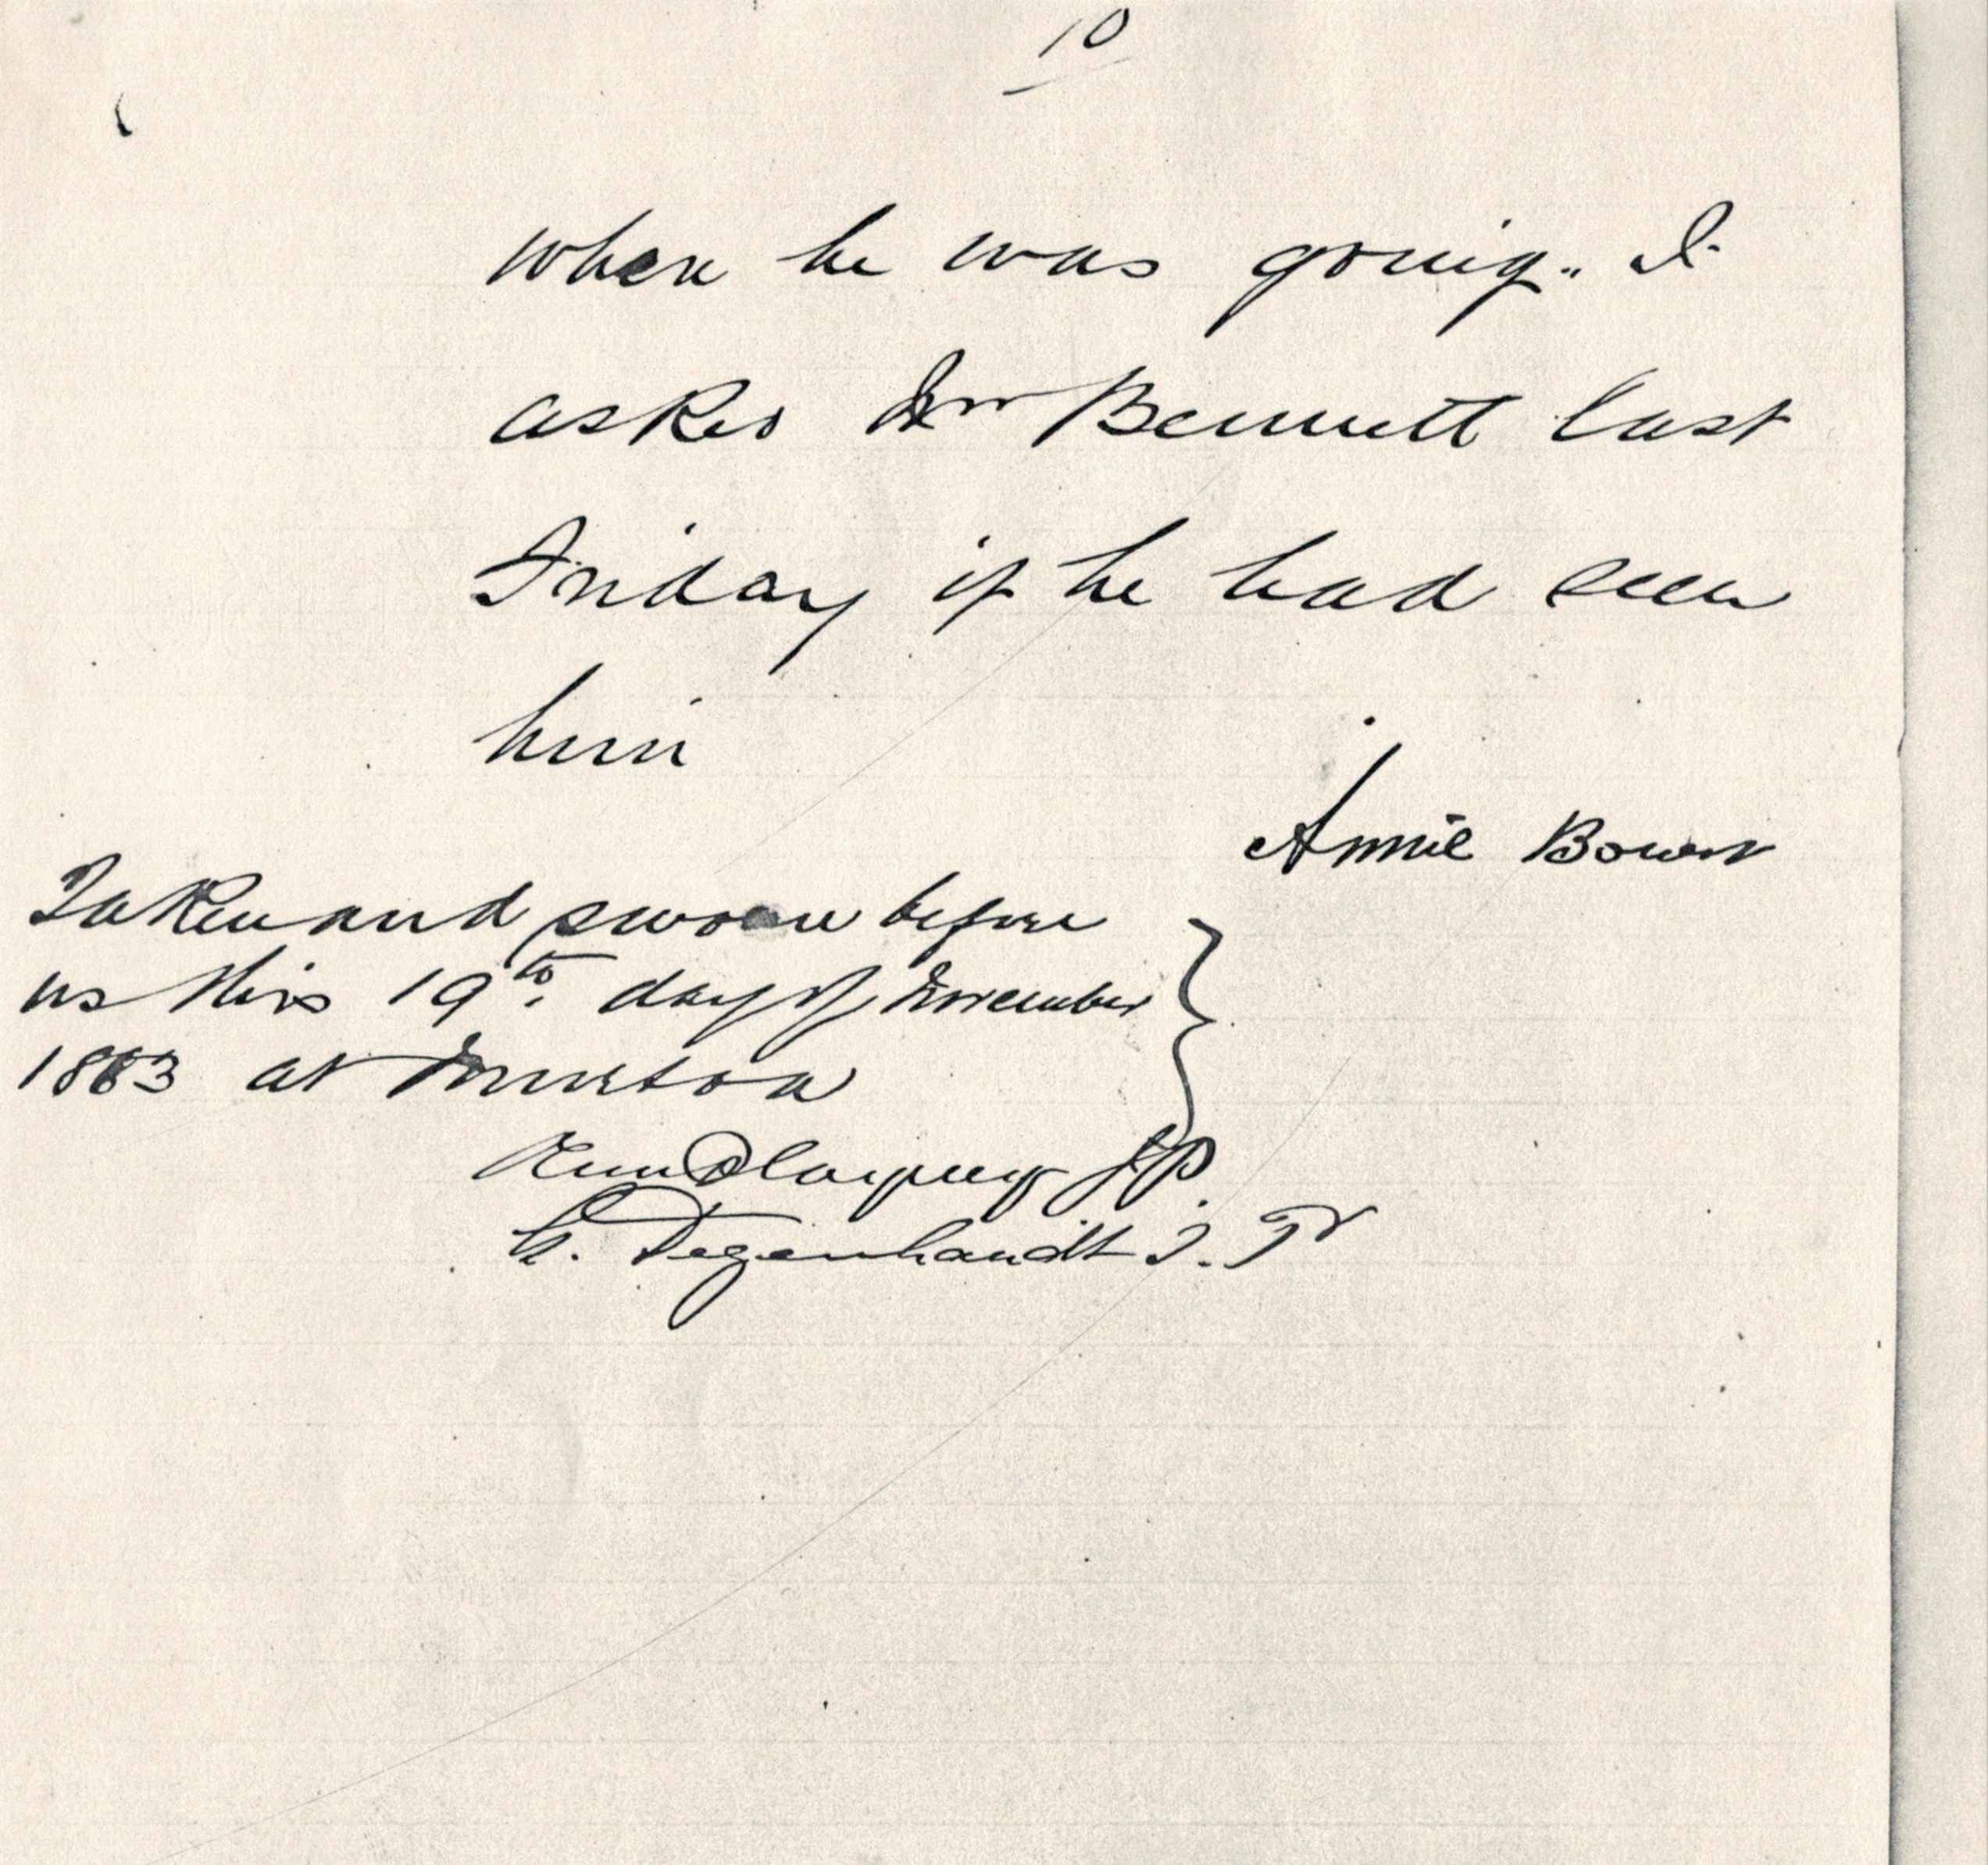 10
where he was going. I
asked Mr Bennett last
Friday if he had seen
him
Annie Bowen
Taken and sworn before
us this 19th. day of November
1883 at Murtoa
JP.
Degenhardt J. P